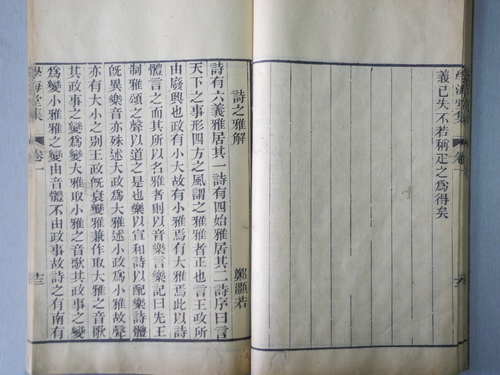 學海堂集 卷一
義已失不若稱疋之為得矣
詩之雅解
鄭灝若
詩有六義雅居其一詩有四始雅居其二詩序曰言
天下之事形四方之風謂之雅雅者正也言王政所
由廢興也政有小大故有小雅焉有大雅焉此以詩
體言之而其所以名雅者則以音樂言樂記曰先王
制雅頌之聲以道之是也樂以宣和詩以配樂詩體
既異樂音亦殊述大政爲大雅述小政爲小雅故聲
亦有大小之别王政既衰變雅兼作取大雅之音歌
其政事之變爲變大雅取小雅之音歌其政事之變
爲變小雅雅之變由音體不由政事故詩之有南有
學海堂集 卷一